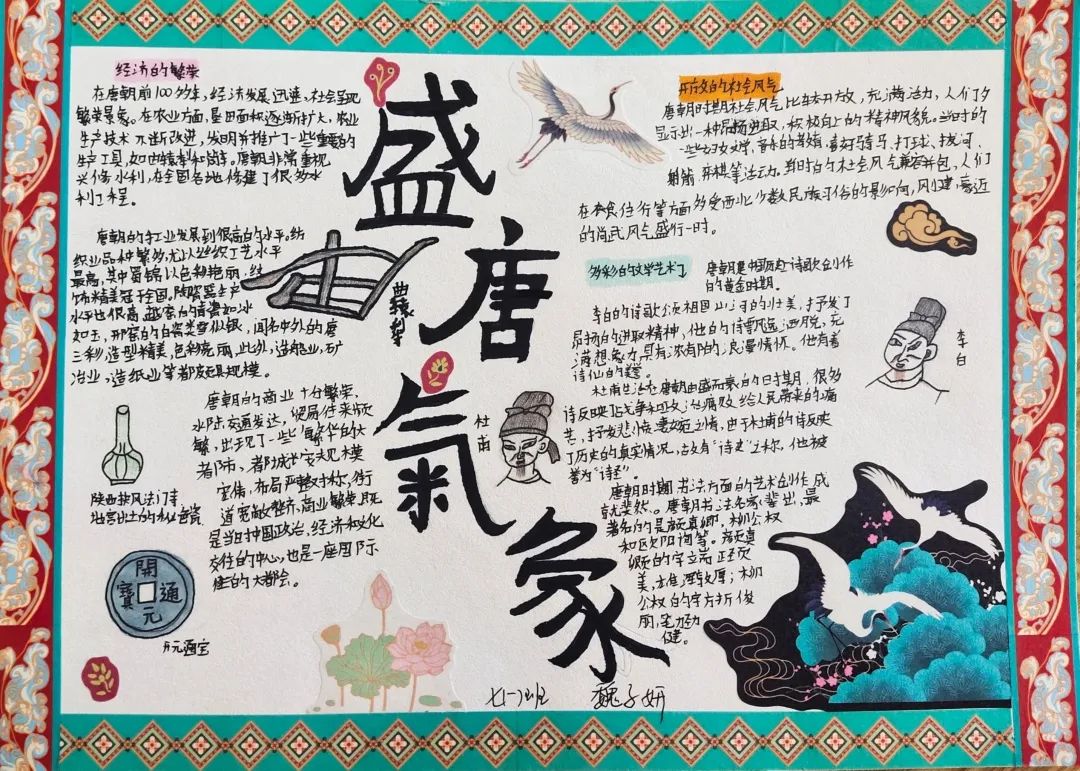 盛唐氣象
经济的繁荣
在唐朝前100多年，经济发展迅速，社会呈现
繁荣景象。在农业方面，垦田面积逐渐扩大，农业
生产技术不断改进，发明并推广了一些重要的
生产工具，如曲辕犁和筒车。唐朝非常重视
兴修水利，在全国各地修建了很多水
利工程。
唐朝的手工业发展到很高的水平。纺
织业品种繁多，尤以丝织工艺水平
最高，其中蜀锦以色彩艳丽，纹
饰精美冠于全国。陶瓷器生产
水平也很高，越窑的青瓷如冰
如玉，邢窑的白瓷类雪似银，闻名中外的唐
三彩，造型精美，色彩亮丽，此外，造船业，矿
冶业，造纸业等都颇具规模。
曲辕犁
唐朝的商业十分繁荣，
水陆交通发达，贸易往来频
繁，出现了一些繁华的大
都市，都城长安规模
宏伟，布局严整对称，街
道宽敞整齐，商业繁荣，既
是当时中国政治，经济和文化
交往的中心，也是一座国际
性的大都会。
陕西扶风法门寺
地宫出土的秘色瓷
開元通寶
开元通宝
开放的社会风气
唐朝时期社会风气比较开放，充满活力，人们多
显示出一种昂扬进取，积极向上的精神风貌。当时的
一些妇女文学、音乐的著婧，喜好骑马、打球、拔河、
射箭、弈棋等活动。当时的社会风气兼容并包，人们
在衣食住行等方面多受西北少数民族习俗的影响，刚健，豪迈
的尚武风气盛行一时。
多彩的文学艺术
唐朝是中国历史诗歌创作
的黄金时期。
李白的诗歌歌颂祖国山河的壮美，抒发了
昂扬的进取精神，他的诗飘逸洒脱，充
满想象力，具有浓郁的浪漫情怀。他有着
诗仙的美誉。
杜甫生活在唐朝由盛而衰的时期，很多
诗反映了战争和政治腐败给人民带来的痛
苦，抒发悲愤凄婉之情，由于杜甫的诗反映
了历史的真实情况，故有“诗史”之称，他被
誉为“诗圣”。
李白
杜甫
唐朝时期书法方面的艺术创作成
就斐然。唐朝书法名家辈出，最
著名的是颜真卿、柳公权
和欧阳询等。颜真
卿的字立端正劲
美，雄浑敦厚；柳
公权的字方折俊
丽，笔力劲
健。
七1-1班 魏子妍